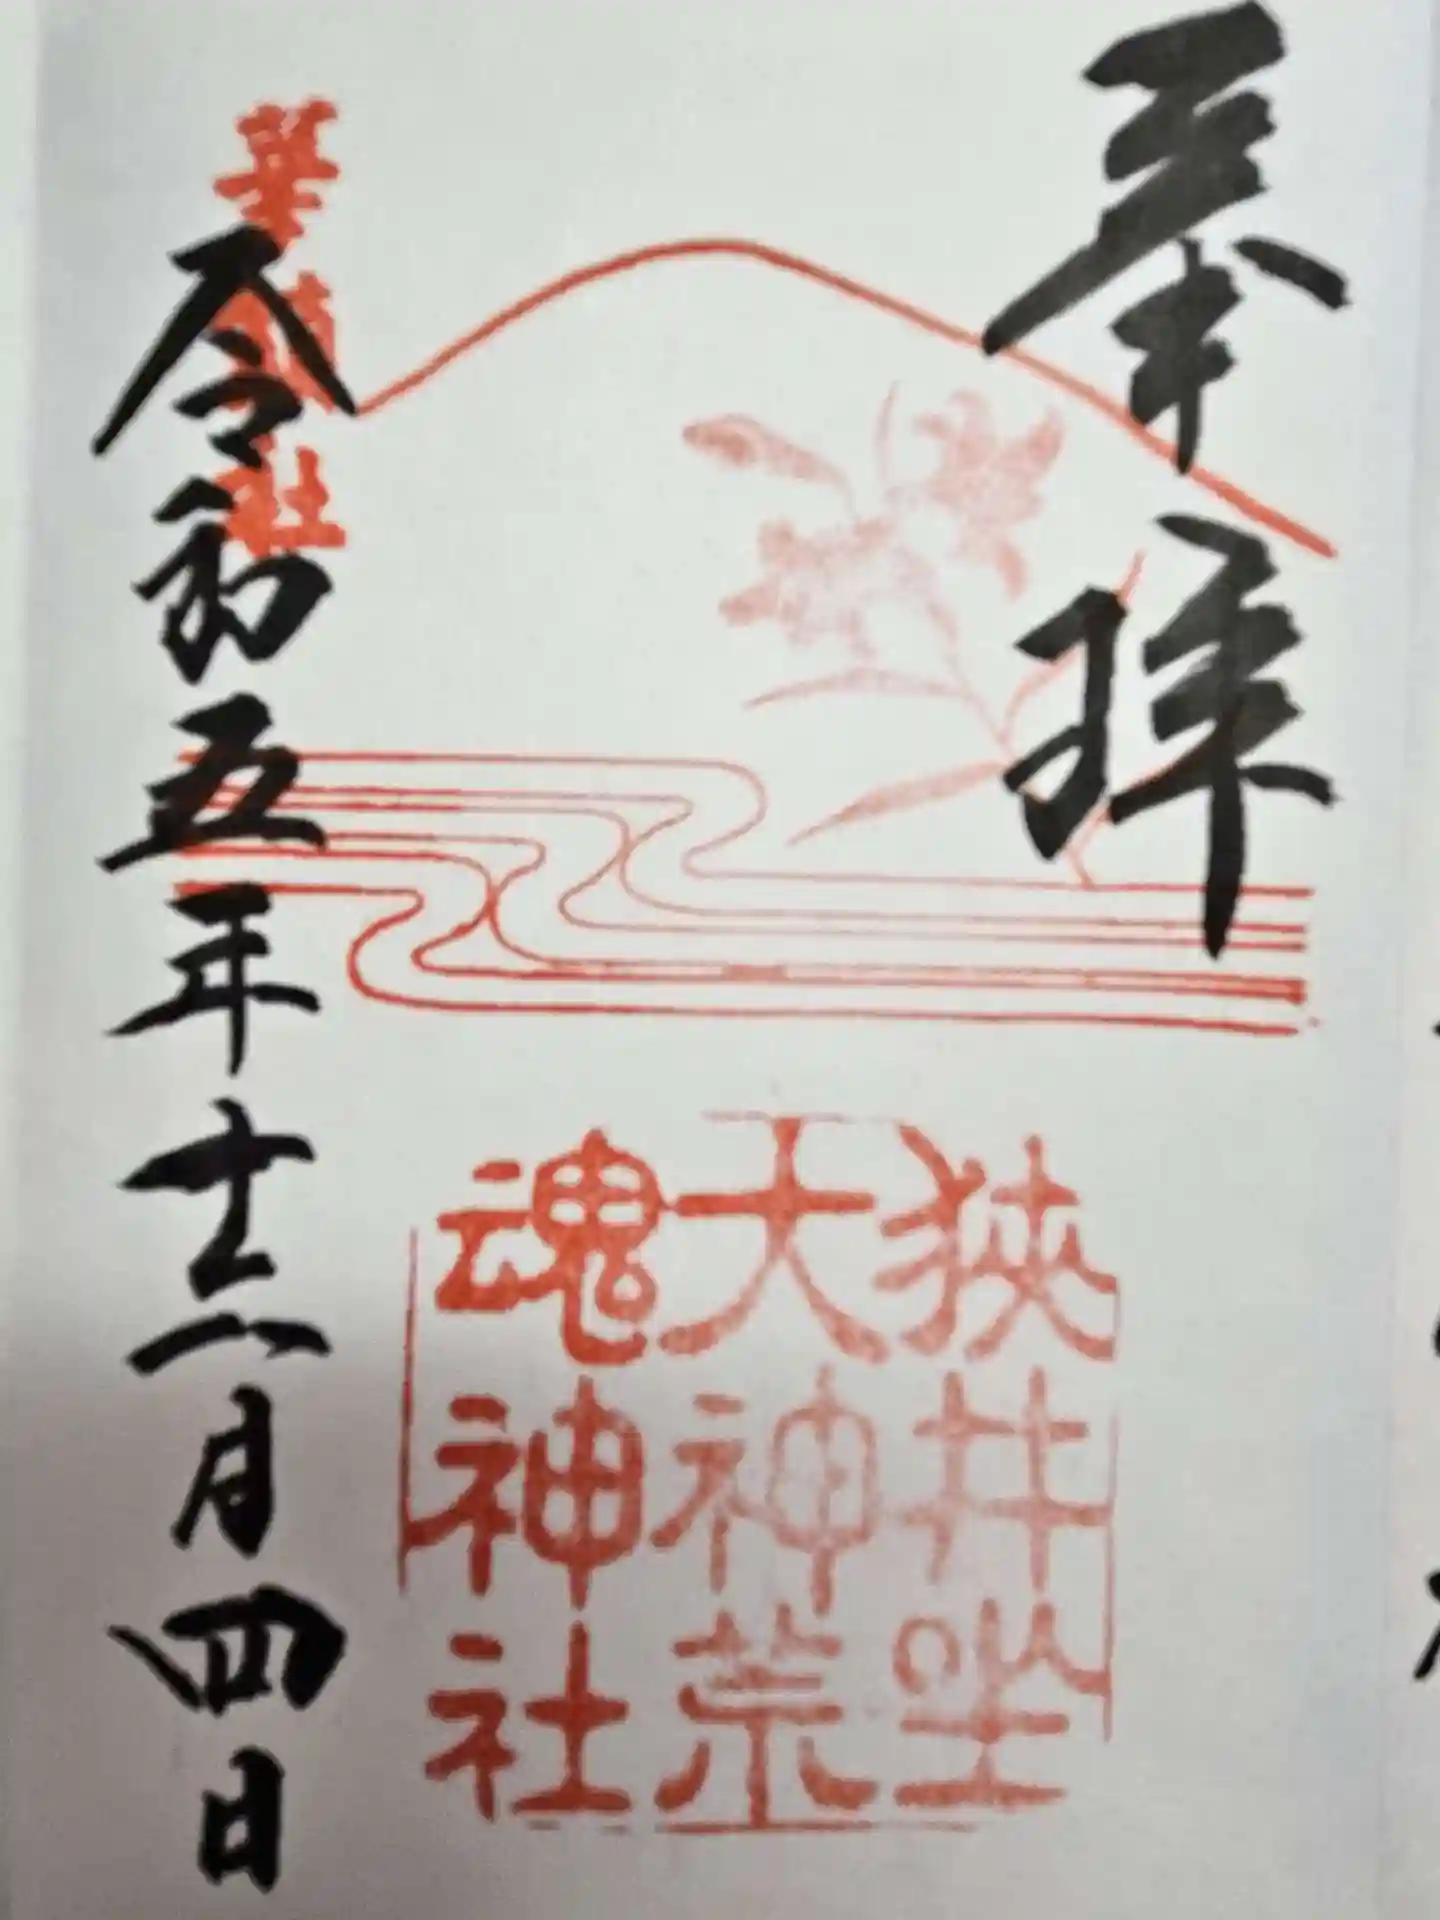 奉拝
狹井坐
大神荒
魂神社
華鎮社
令和五年十二月四日